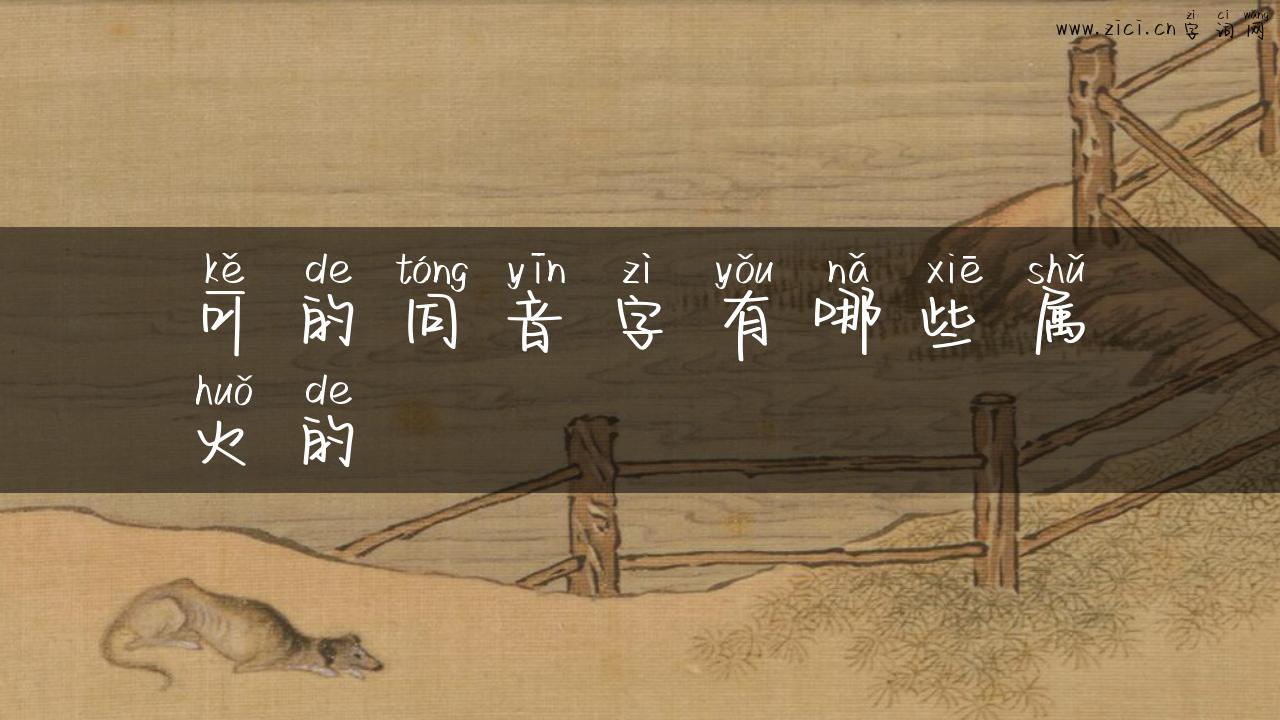 zì cí wǎng
www.zici.cn 字 词 网
kě de tóng yīn zì yǒu nǎ xiē shǔ
可 的 同 音 字 有 哪 些 属
huǒ de
火 的